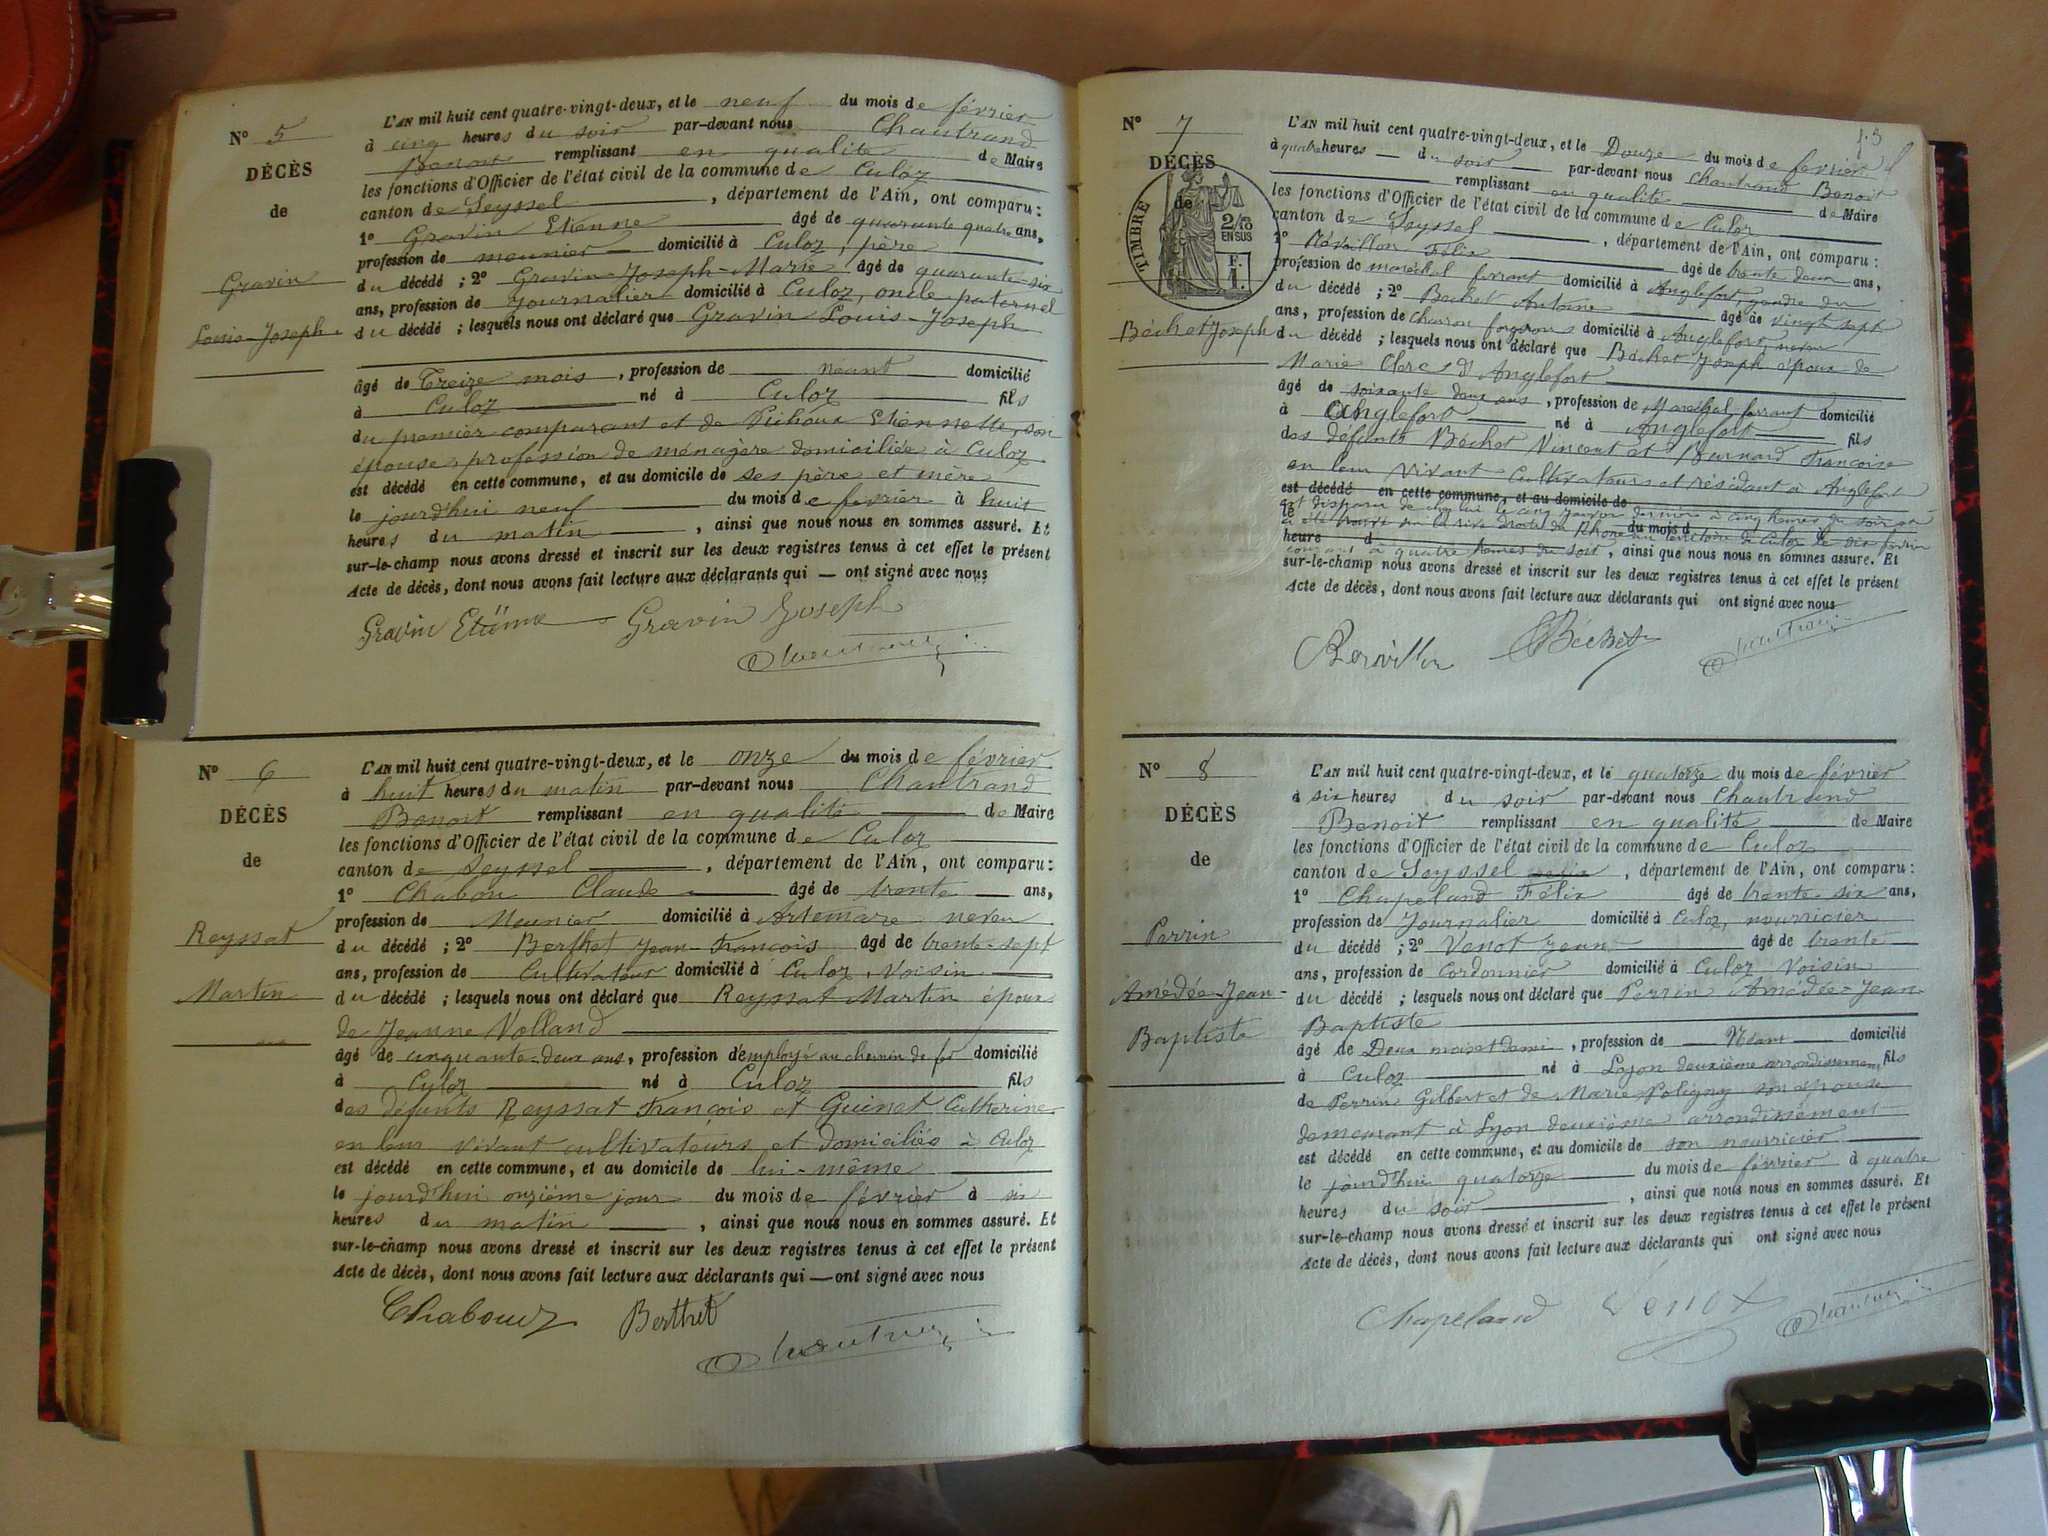 N° 5
DÉCÈS
de
Gravin
Louis-Joseph
L'AN mil huit cent quatre-vingt-deux, et le neuf du mois de février
à cinq heures du soir par-devant nous Chantrand
Benoit remplissant en qualité de Maire
les fonctions d'Officier de l'état civil de la commune de Culoz
canton de Seyssel, département de l'Ain, ont comparu :
1° Gravin Etienne âgé de quarante quatre ans,
profession de meunier domicilié à Culoz, père
du décédé ; 2° Gravin Joseph-Marie âgé de quarante-six
ans, profession de journalier domicilié à Culoz, oncle paternel
du décédé ; lesquels nous ont déclaré que Gravin Louis-Joseph
âgé de Treize mois, profession de neant domicilié
à Culoz né à Culoz fils
du premier comparant et de Etiennette, son
épouse, profession de ménagère domiciliée à Culoz
est décédé en cette commune, et au domicile de ses père et mère
le jourd'hui neuf du mois de fevrier à huit
heures du matin, ainsi que nous nous en sommes assuré. Et
sur-le-champ nous avons dressé et inscrit sur les deux registres tenus à cet effet le présent
Acte de décès, dont nous avons fait lecture aux déclarants qui — ont signé avec nous
Gravin Etienne Gravin Joseph
Chantrand
N° 6
DÉCÈS
de
Reyssat
Martin
L'AN mil huit cent quatre-vingt-deux, et le onze du mois de février
à huit heures du matin par-devant nous Chantrand
Benoit remplissant en qualité de Maire
les fonctions d'Officier de l'état civil de la commune de Culoz
canton de Seyssel, département de l'Ain, ont comparu :
1° Chabou Claude âgé de trente ans,
profession de Meunier domicilié à Artemare neveu
du décédé ; 2° Berthet Jean-François âgé de trente-sept
ans, profession de Cultivateur domicilié à Culoz, Voisin
du décédé ; lesquels nous ont déclaré que Reyssat Martin époux
de Jeanne Volland
âgé de cinquante-deux ans, profession d'employé au chemin de fer domicilié
à Culoz né à Culoz fils
des défunts Reyssat François et Guinet Catherine
en leur vivant cultivateurs et domiciliés à Culoz
est décédé en cette commune, et au domicile de lui-même
le jourd'hui onzième jour du mois de février à six
heures du matin, ainsi que nous nous en sommes assuré. Et
sur-le-champ nous avons dressé et inscrit sur les deux registres tenus à cet effet le présent
Acte de décès, dont nous avons fait lecture aux déclarants qui — ont signé avec nous
Chabouz Berthet
Chantrand
N° 7
DÉCÈS
de
TIMBRE
2/10
EN SUS
F.
1.
Béchet Joseph
L'AN mil huit cent quatre-vingt-deux, et le Douze du mois de fevrier
à quatre heures du soir par-devant nous Chantrand Benoit
remplissant en qualité de Maire
les fonctions d'Officier de l'état civil de la commune de Culoz
canton de Seyssel, département de l'Ain, ont comparu :
1° Révillon Félix âgé de trente deux ans,
profession de maréchal ferrant domicilié à Anglefort, gendre du
du décédé ; 2° Béchet Antoine âgé de vingt sept
ans, profession de charron forgeron domicilié à Anglefort, neveu
du décédé ; lesquels nous ont déclaré que Béchet Joseph époux de
Marie Clerc d'Anglefort
âgé de soixante deux ans, profession de Maréchal ferrant domicilié
à Anglefort né à Anglefort fils
des défunts Béchet Vincent et Burnard Françoise
en leur vivant Cultivateurs et résidant à Anglefort
est décédé en cette commune, et au domicile de
est disparu de chez lui le cinq janvier dernier à cinq heures du soir et
le a été trouvé sur la rive droite du Rhone du mois d au territoire de Culoz le dix février
heure d courant à quatre heures du soir, ainsi que nous nous en sommes assuré. Et
sur-le-champ nous avons dressé et inscrit sur les deux registres tenus à cet effet le présent
Acte de décès, dont nous avons fait lecture aux déclarants qui ont signé avec nous
Revillon Béchet Chantrand
N° 8
DÉCÈS
de
Perrin
Amédée-Jean-
Baptiste
L'AN mil huit cent quatre-vingt-deux, et le quatorze du mois de février
à six heures du soir par-devant nous Chantrand
Benoit remplissant en qualité de Maire
les fonctions d'Officier de l'état civil de la commune de Culoz
canton de Seyssel, département de l'Ain, ont comparu :
1° Chapeland Félix âgé de trente-six ans,
profession de Journalier domicilié à Culoz, nourricier
du décédé ; 2° Venot Jean âgé de trente
ans, profession de Cordonnier domicilié à Culoz Voisin
du décédé ; lesquels nous ont déclaré que Perrin Amédée-Jean-
Baptiste
âgé de Deux mois et demi, profession de Néant domicilié
à Culoz né à Lyon deuxième arrondissement, fils
de Perrin Gilbert et de Marie Poligny son épouse
demeurant à Lyon deuxième arrondissement
est décédé en cette commune, et au domicile de son nourricier
le jourd'hui quatorze du mois de février à quatre
heures du soir, ainsi que nous nous en sommes assuré. Et
sur-le-champ nous avons dressé et inscrit sur les deux registres tenus à cet effet le présent
Acte de décès, dont nous avons fait lecture aux déclarants qui ont signé avec nous
Chapeland Venot Chantrand